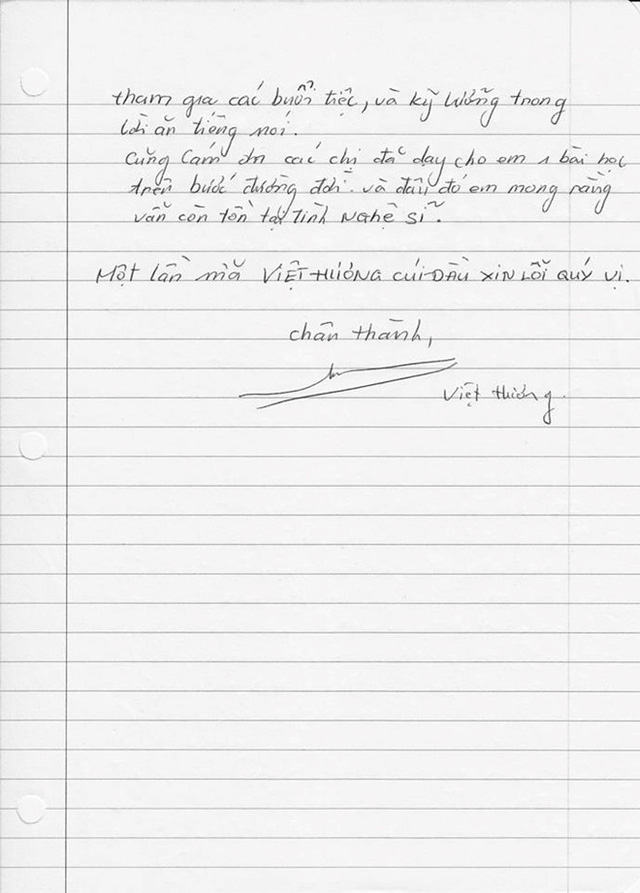 tham gia các buổi tiệc, và kỹ lưỡng trong
lời ăn tiếng nói.
Cũng cám ơn các chị đã dạy cho em 1 bài học
trên bước đường đời. và đâu đó em mong rằng
vẫn còn tồn tại tình nghệ sĩ.
Một lần nữa VIỆT HƯƠNG CÚI ĐẦU XIN LỖI QUÝ VỊ.
chân thành,
Việt Hương